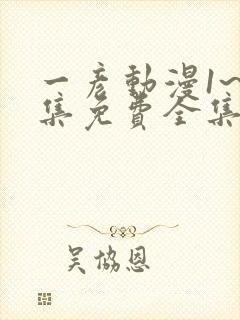 一彦動漫1~
集免費全集
吴協恩